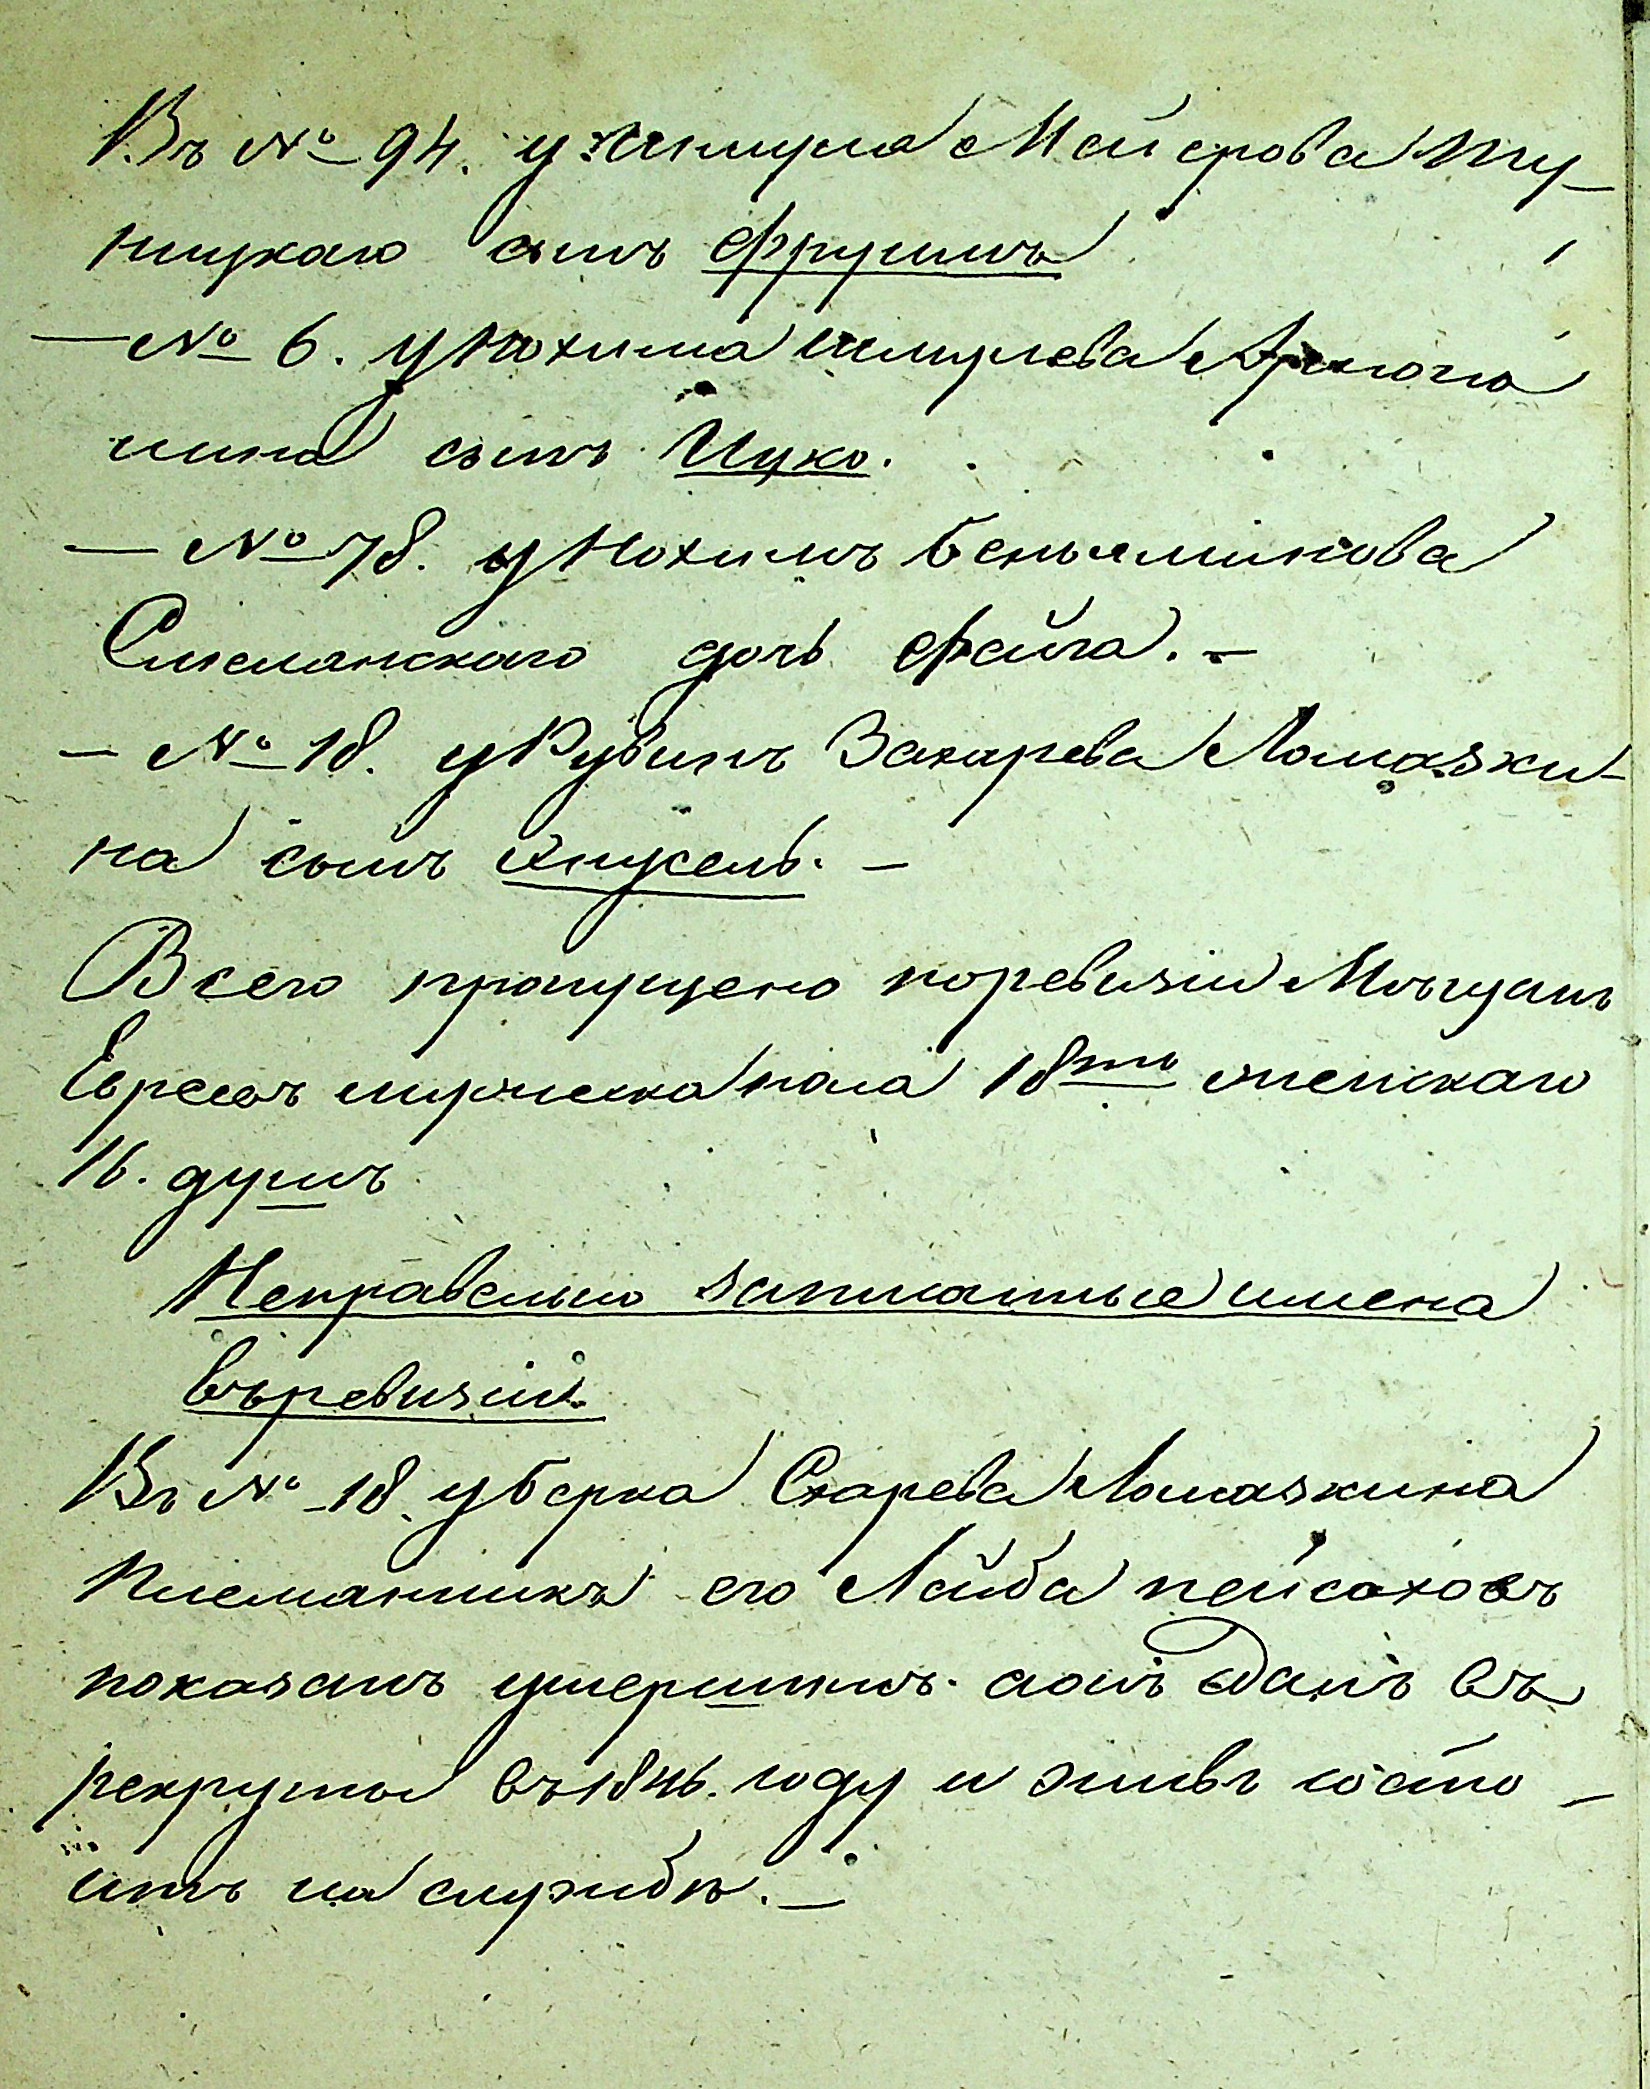 Въ № 94. у Шмула Мейерова Ту-
ницкаго сынъ Фруимъ
— № 6. у Нохима Шмулева
шина сынъ Ицко.
— № 78. у Нохимъ Беньяминова
Смелянскаго дочь Фейга. —
— № 18. у Рувинъ Захарева Ломазки-
на сынъ Янкель. —
Всего пропущено поревизіи Мѣщанъ
Евреевъ мужеска пола 18ть женскаго
16. душъ
Неправельно записанные имена
въ ревизіи.
Въ № 18. у Берка Схарева Ломазкина
Племянникъ его Лейба пейсаховъ
показанъ умершимъ. а онъ зданъ въ
рекруты въ 1846. году и живъ состо-
итъ на службѣ. —